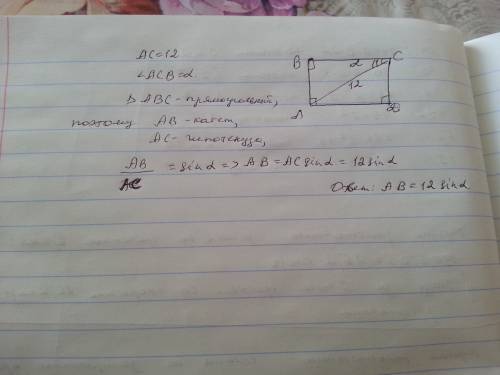 AC=12
∠ACB=α
▷ ABC - прямоугольный,
поэтому AB - катет,
AC - гипотенуза,
AB/AC = sinα => AB = ACsinα = 12sinα
Ответ: AB = 12 sinα
B α C
12
A D